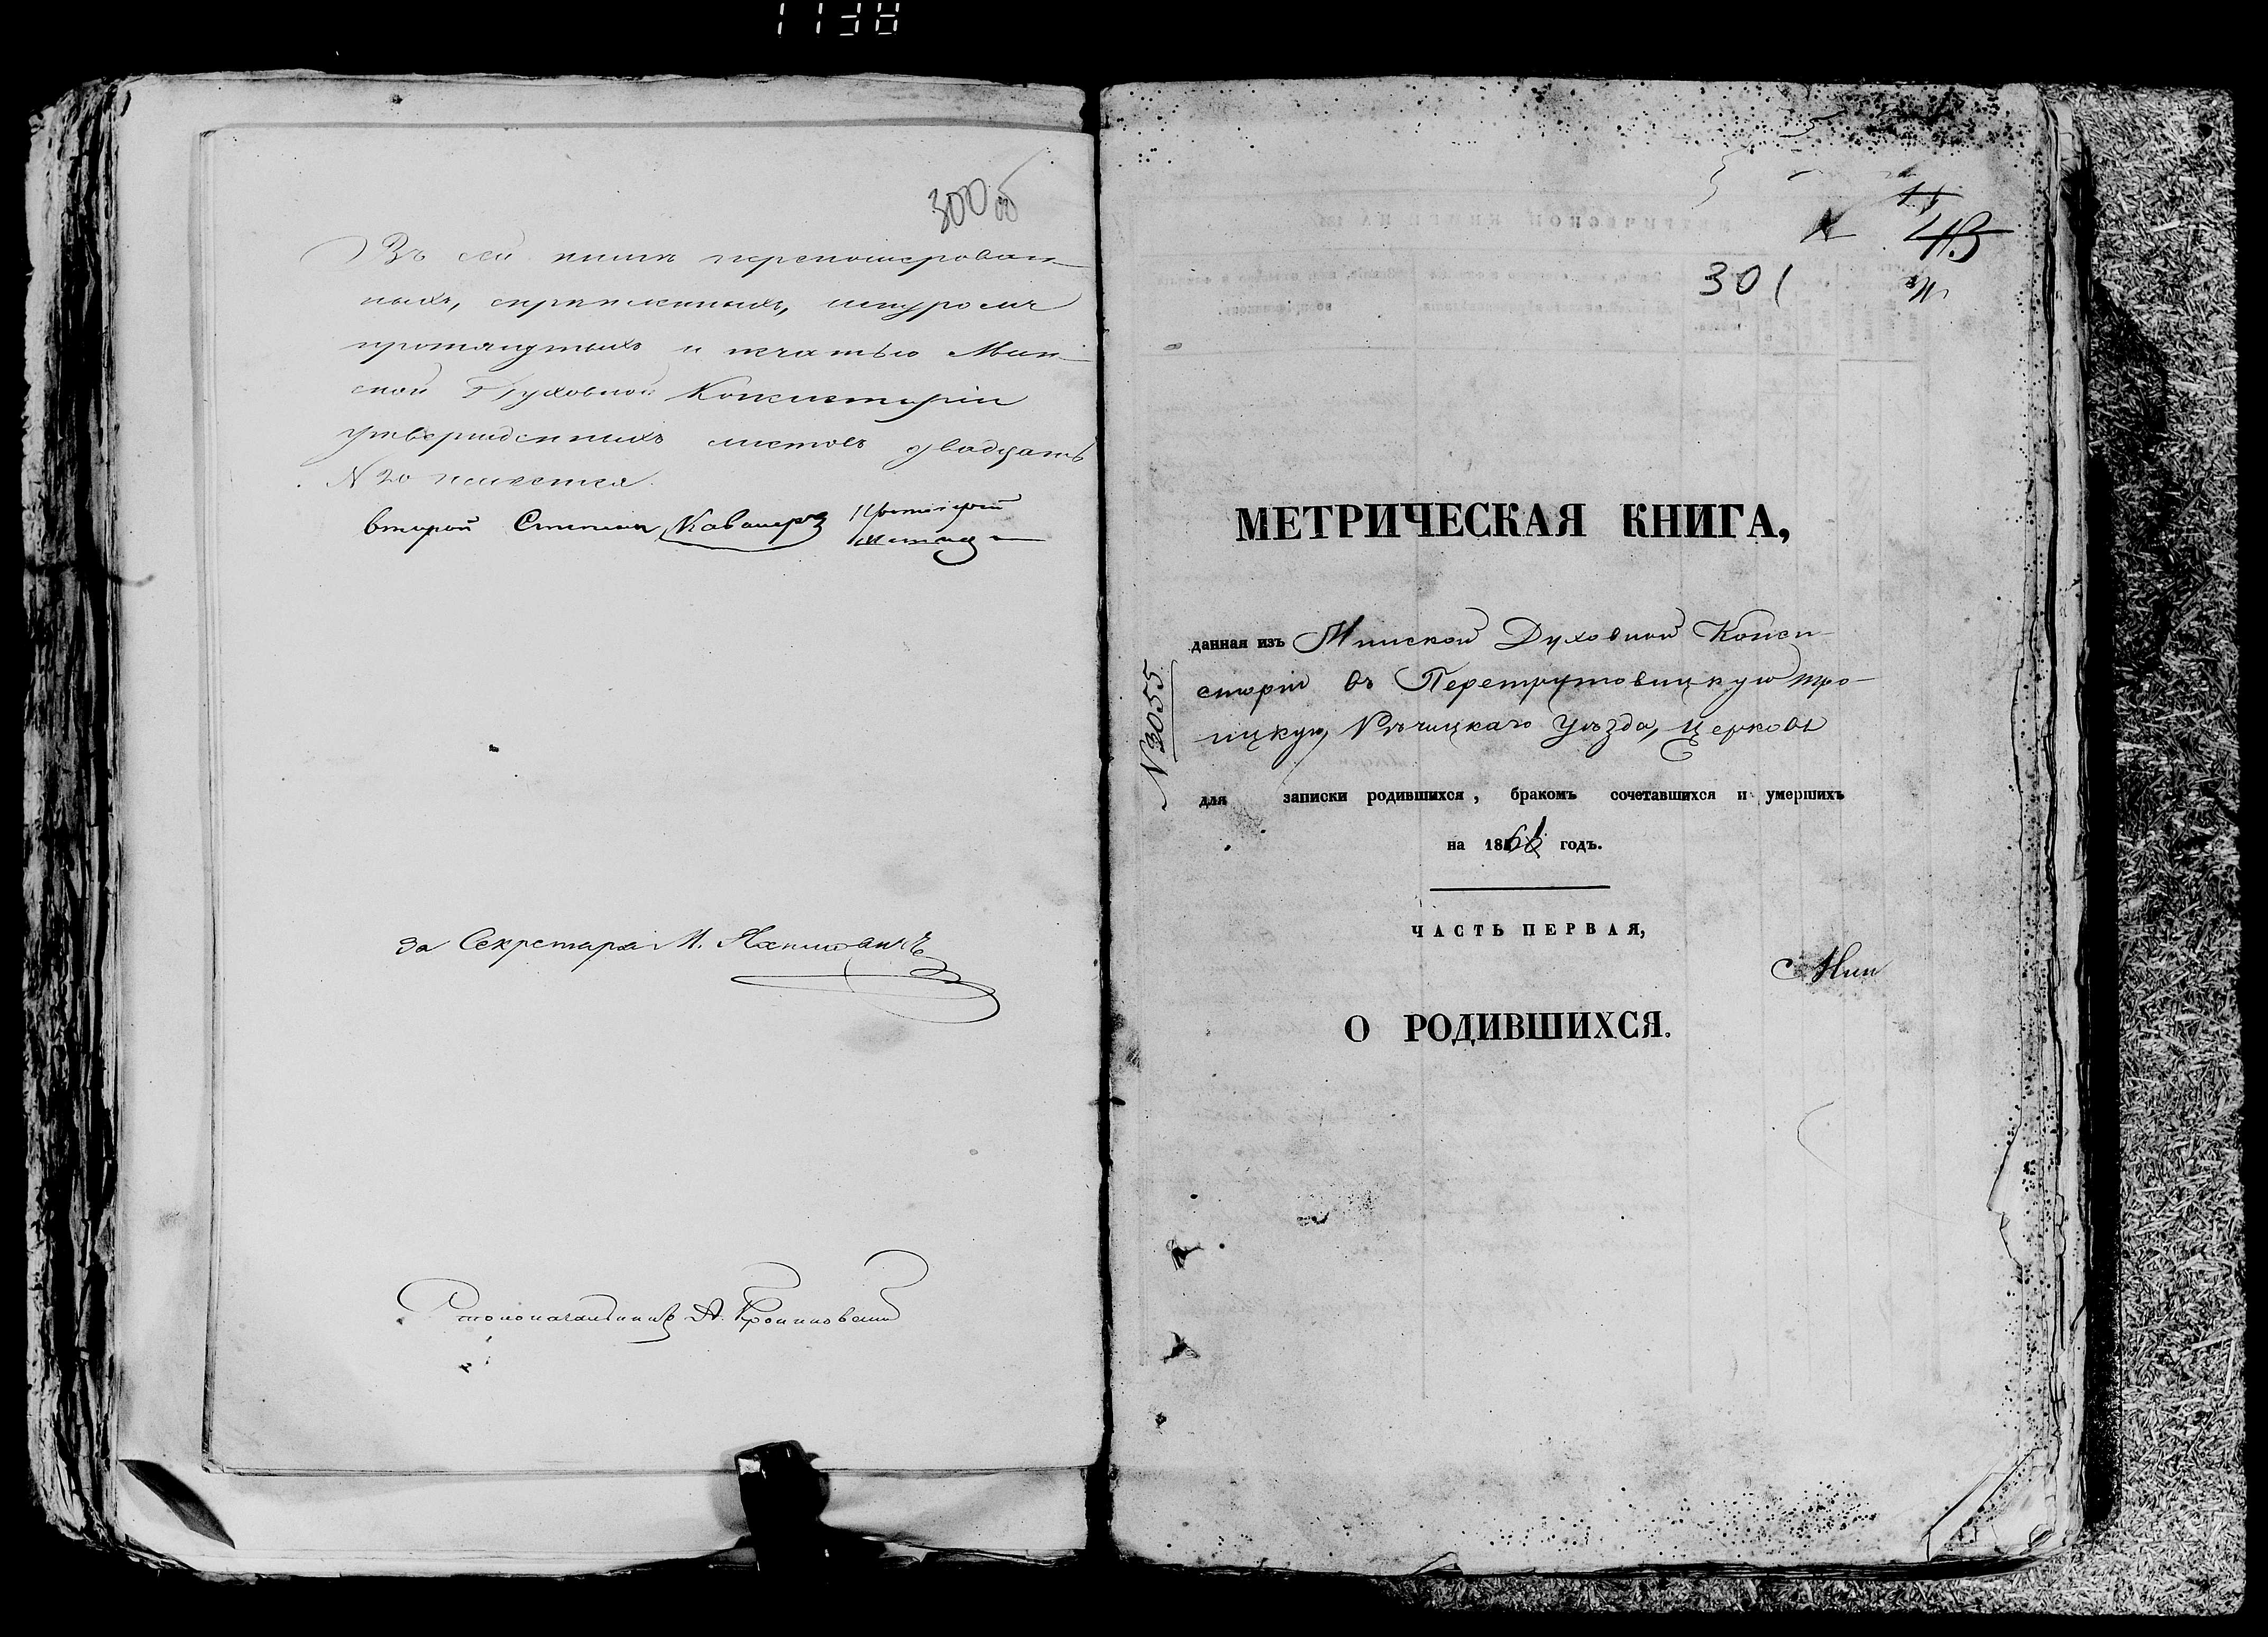 300 об
Въ сей книгѣ перенумерован-
ныхъ, скрѣпленныхъ, шнуромъ
протянутыхъ и печатью Мин-
ской Духовной Консисторіи
утвержденныхъ листовъ двадцать
N 20 имѣется.
второй Степени Кавалеръ Протоіерей
за Секретаря М.
Столоначальникъ А.
301
43
МЕТРИЧЕСКАЯ КНИГА,
данная изъ Минской Духовной Конси-
сторіи въ Перетрутовицкую Тро-
ицкую, Рѣчицкаго Уѣзда, Церковь
N 3055
для записки родившихся, бракомъ сочетавшихся и умершихъ
на 1861 годъ.
ЧАСТЬ ПЕРВАЯ,
Мин
О РОДИВШИХСЯ.